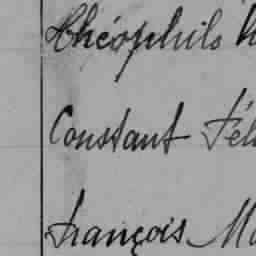 Théophile
Constant Fél
François Ma